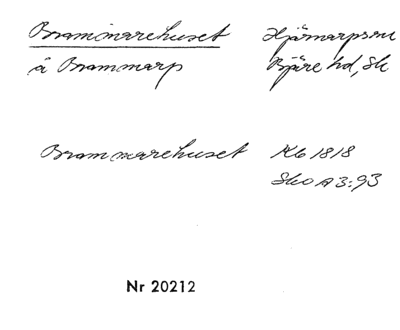 Brammarehuset Hjärnarps sn
å Brammarp Bjäre hd, Sk
Brammarehuset Kb 1818
Sko A 3:93
Nr 20212